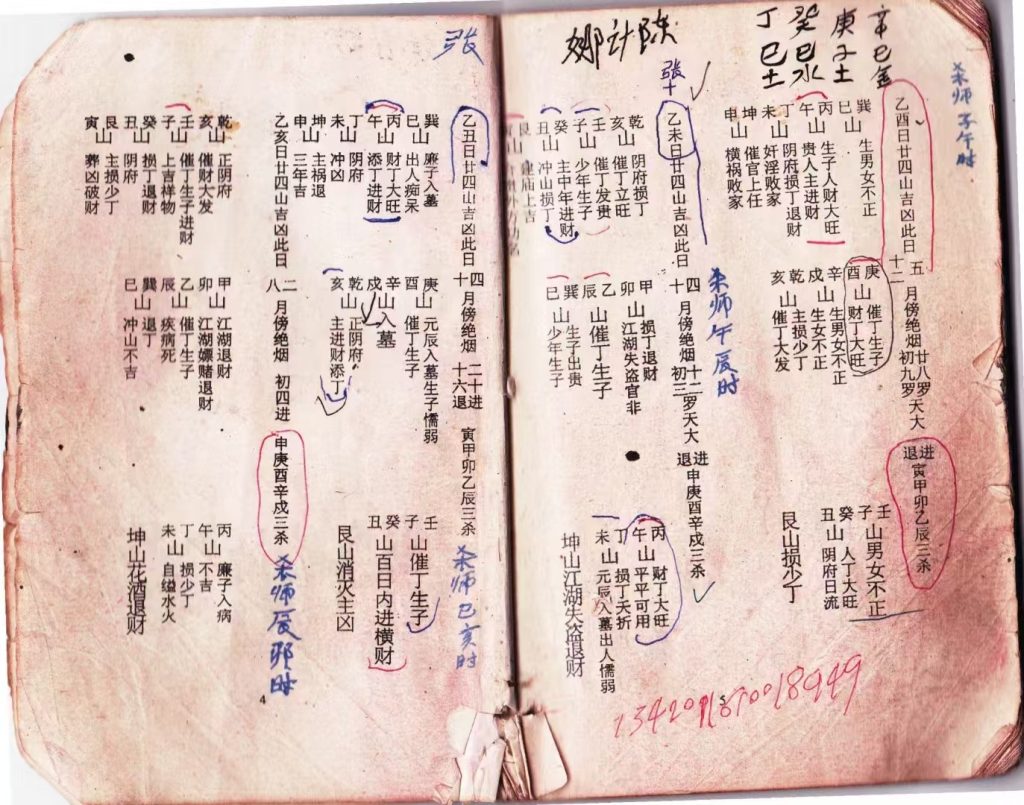 杀师子午时
辛巳金
庚子土
癸巳水
丁巳土
娜计陈
张十
乙酉日廿四山吉凶此日 五十二 月傍绝烟 廿八初九 罗天大 进退 寅甲卯乙辰三杀
巽
巳山 生男女不正
丙 生子人财大旺
午山 贵人主进财
丁 阴府损丁退财
未山 奸淫败家
坤 催官上任
申山 横祸败家
庚 催丁生子
酉山 财丁大旺
辛 生男女不正
戌山 生女不正
乾 主损少丁
亥山 催丁大发
壬
子山男女不正
癸 人丁大旺
丑山 阴府日流
艮山损少丁
乙未日廿四山吉凶此日 四十 月傍绝烟 十二初三 罗天大 进退 申庚酉辛戌三杀
杀师午辰时
乾 阴府损丁
亥山 催丁立旺
壬 催丁发贵
子山 少年生子
癸 主中年进财
丑山 冲山损丁
艮 建庙上吉
寅山
甲 损丁退财
卯山 江湖失盗官非
乙
辰山催丁生子
巽 生子出贵
巳山 少年生子
丙 财丁大旺
午山 平平可用
丁 损丁夭折
未山 元辰入墓出人懦弱
坤山江湖失盗退财
1342091870018949
5
张
乙丑日廿四山吉凶此日 四十 月傍绝烟 二十进 十六退 寅甲卯乙辰三杀
杀师巳亥时
巽 廉子入墓
巳山 出人痴呆
丙 财丁大旺
午山 添丁进财
丁 阴府
未山 冲凶
坤 主祸退
申山 三年吉
庚 元辰入墓生子懦弱
酉山 催丁生子
辛
戌山入墓
乾 正阴府
亥山 主进财添丁
壬
子山催丁生子
癸
丑山百日内进横财
艮山消火主凶
乙亥日廿四山吉凶此日 二八 月傍绝烟 初四进 申庚酉辛戌三杀
杀师辰卯时
乾 正阴府
亥山 催财大发
壬 催丁生子进财
子山 上吉祥物
癸 损丁退财
丑山 阴府
艮 主损少丁
寅山 葬凶破财
甲 江湖退财
卯山 江湖嫖赌退财
乙 催丁生子
辰山 疾病死
巽 退丁
巳山 冲山不吉
丙 廉子入病
午山 不吉
丁 损少丁
未山 自缢水火
坤山花酒退财
4